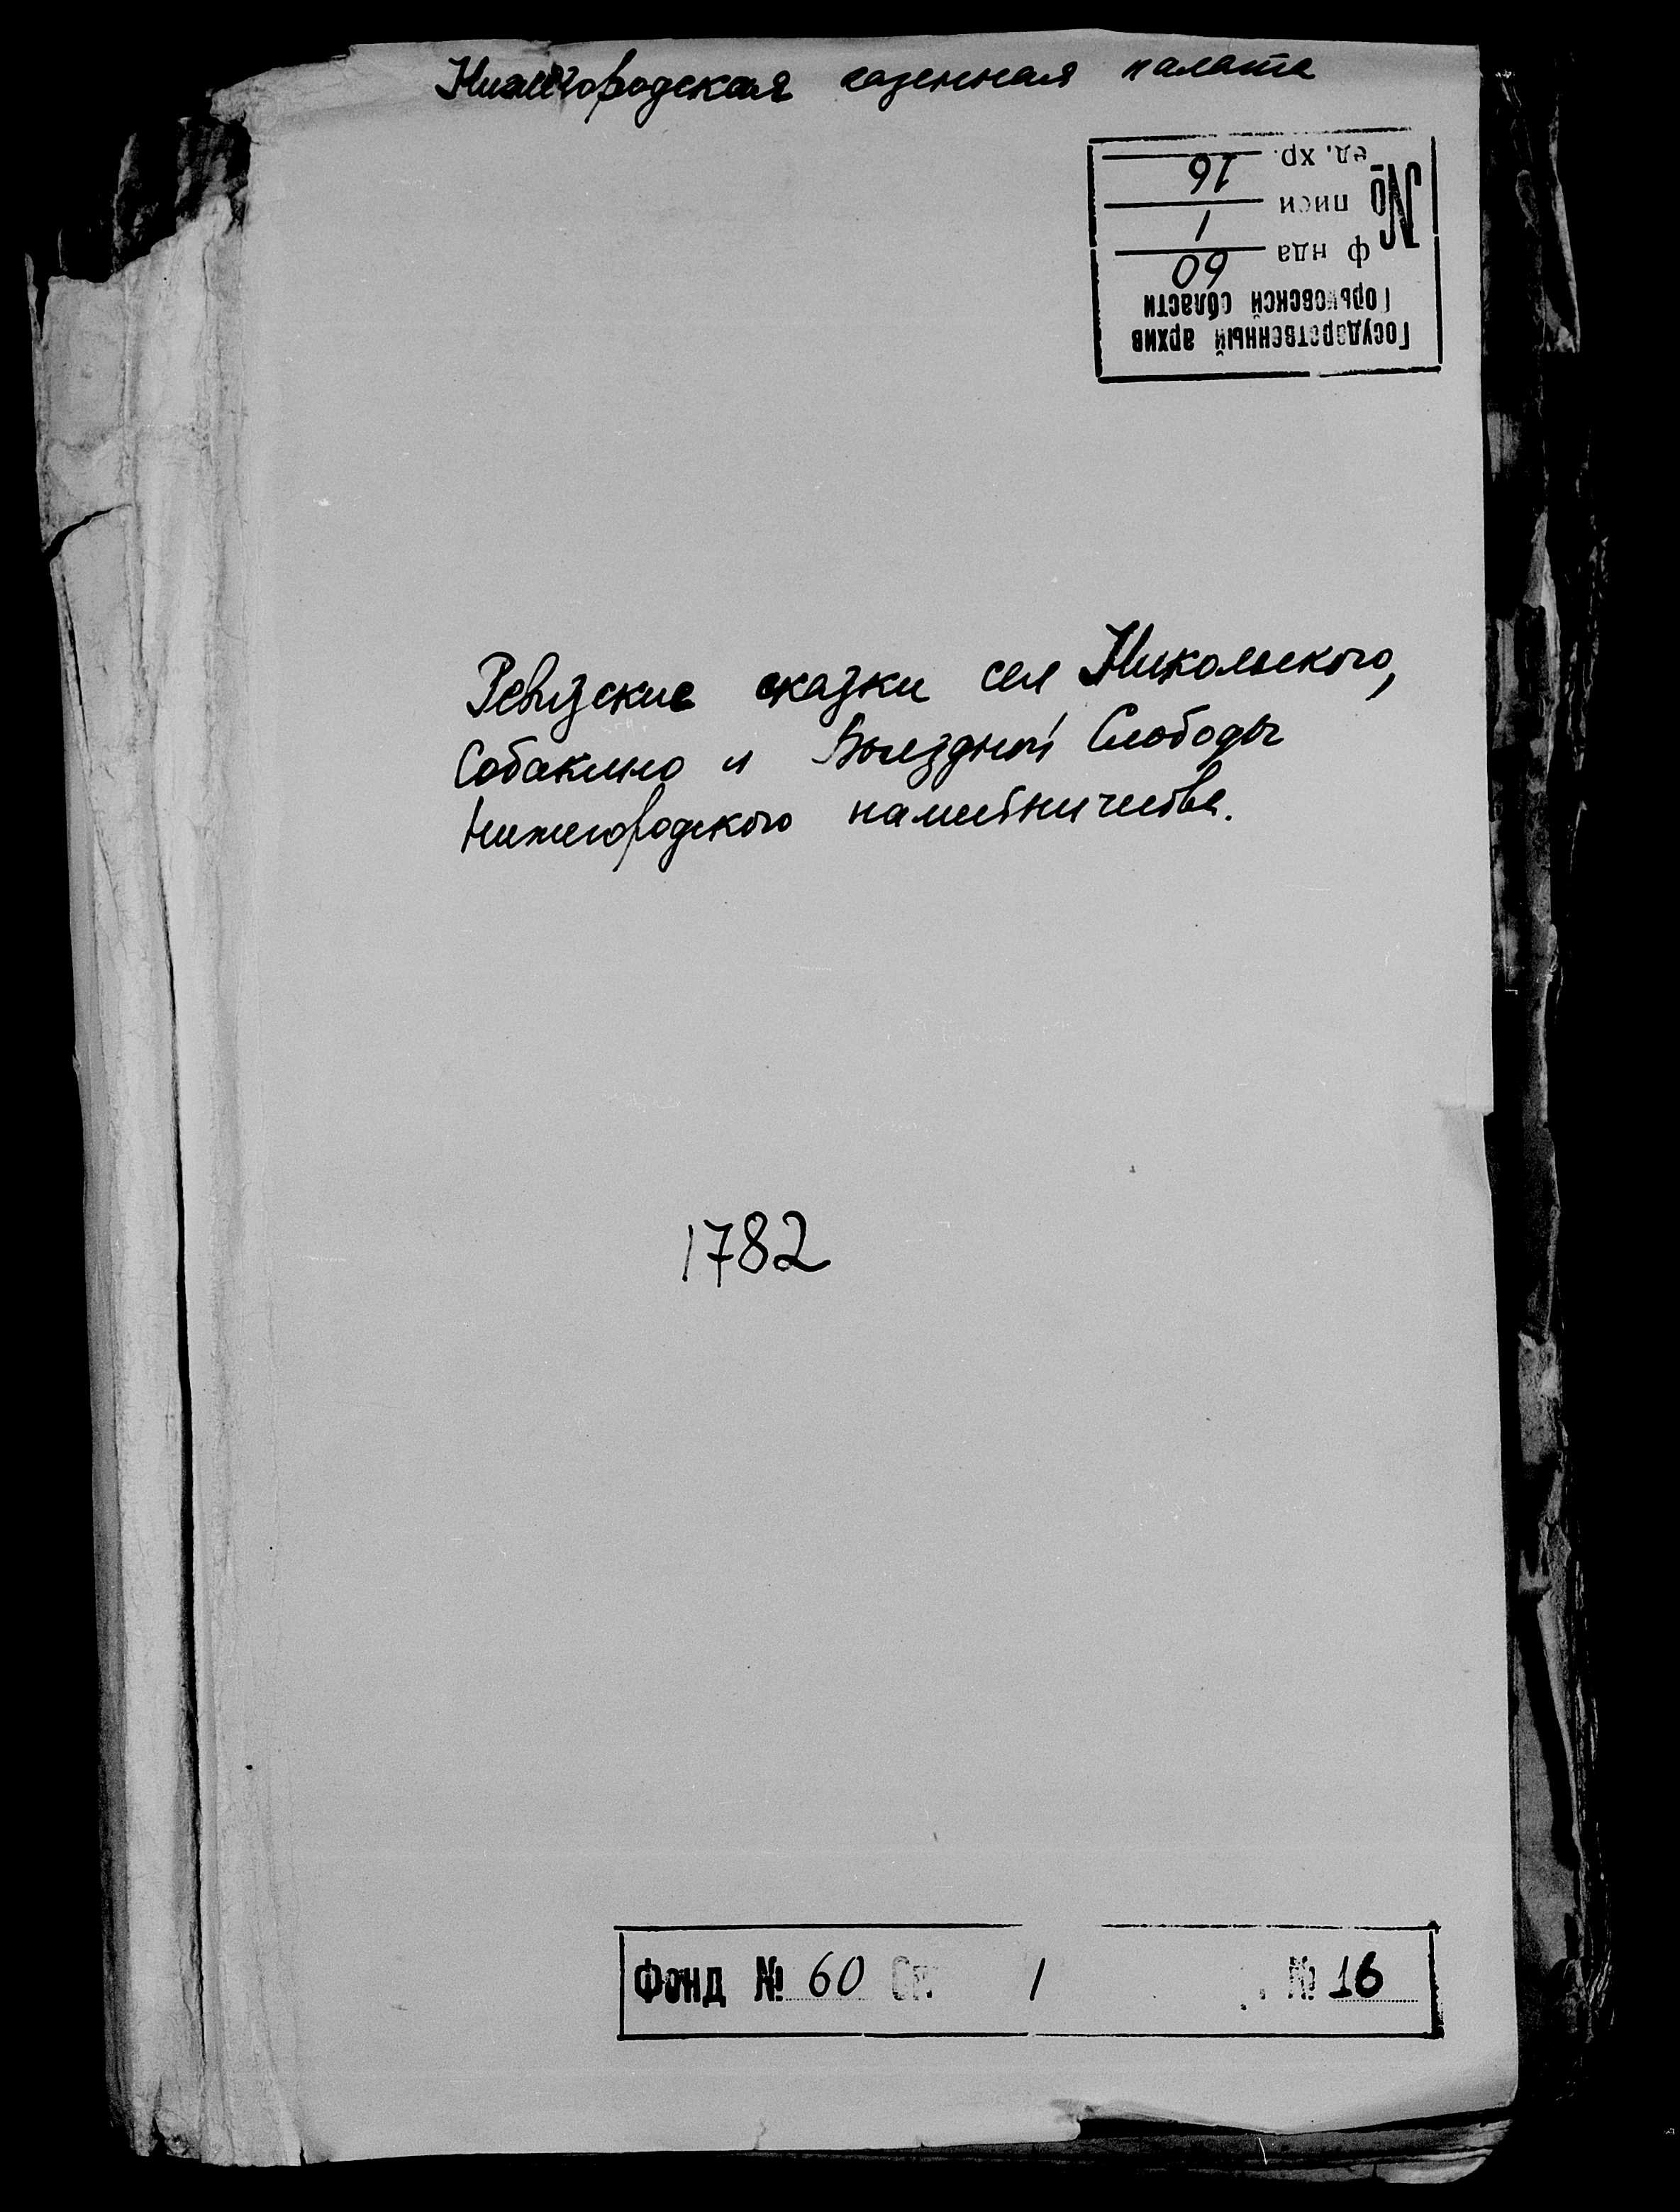 Нижегородская казенная палата
Государственный архив
Горьковской области
ф нда 60
№ писи 1
ед. хр. 16
Ревизские сказки сел Никольского,
Собакино и Выездной Слободы
Нижегородского наместничества.
1782
Фонд № 60 Оп. 1 № 16